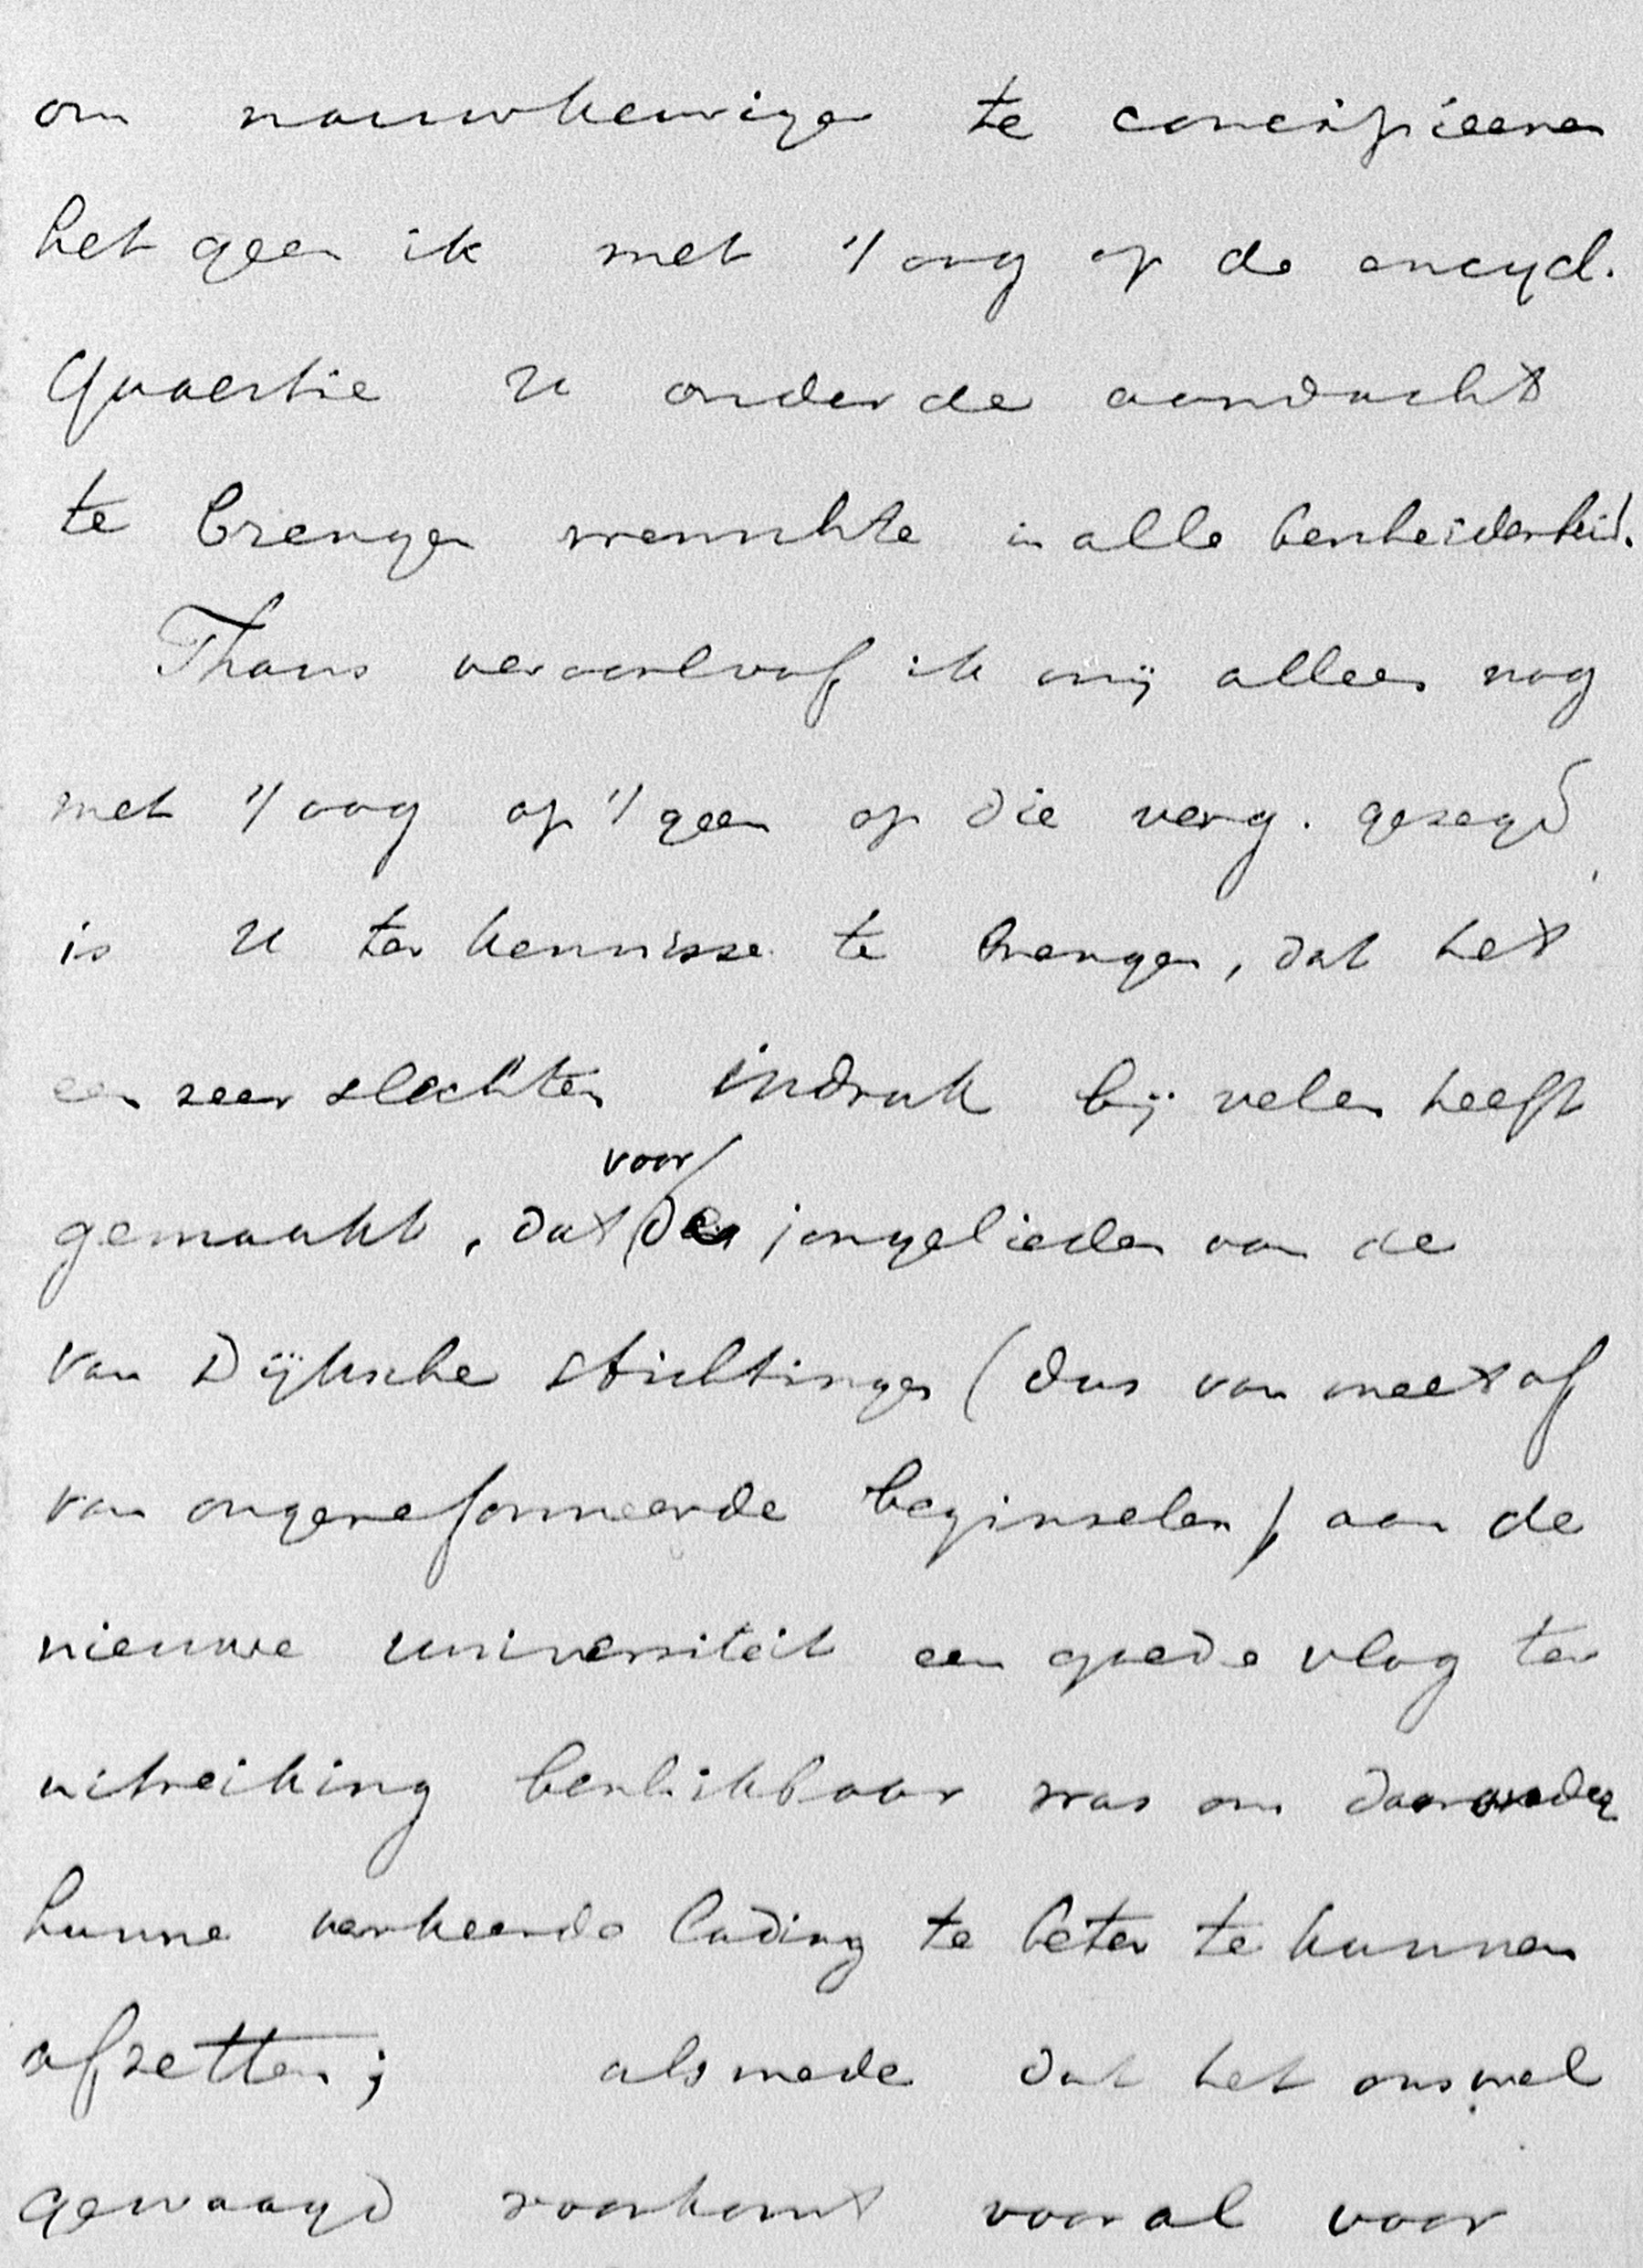 om nauwkeuriger te concipieeren
het geen ik met 't oog op de encycl.
Quaestie U onder de aandacht
te brengen wenschte in alle bescheidenheid.
Thans veroorloof ik mij alleen nog
met 't oog op 't geen op die verg. gezegd
is U ter kennisse te brengen, dat het
een zeer slechten indruk bij velen heeft
gemaakt, dat voor de jongelieden van de
van Dijksche stichtingen (dus van meet af
van ongereformeerde beginselen) aan de
nieuwe universiteit een goede vlag ter
uitreiking beschikbaar was om daaronder
hunne verkeerde lading te beter te kunnen
afzetten; alsmede dat het ons wel
gewaagd voorkomt vooral voor